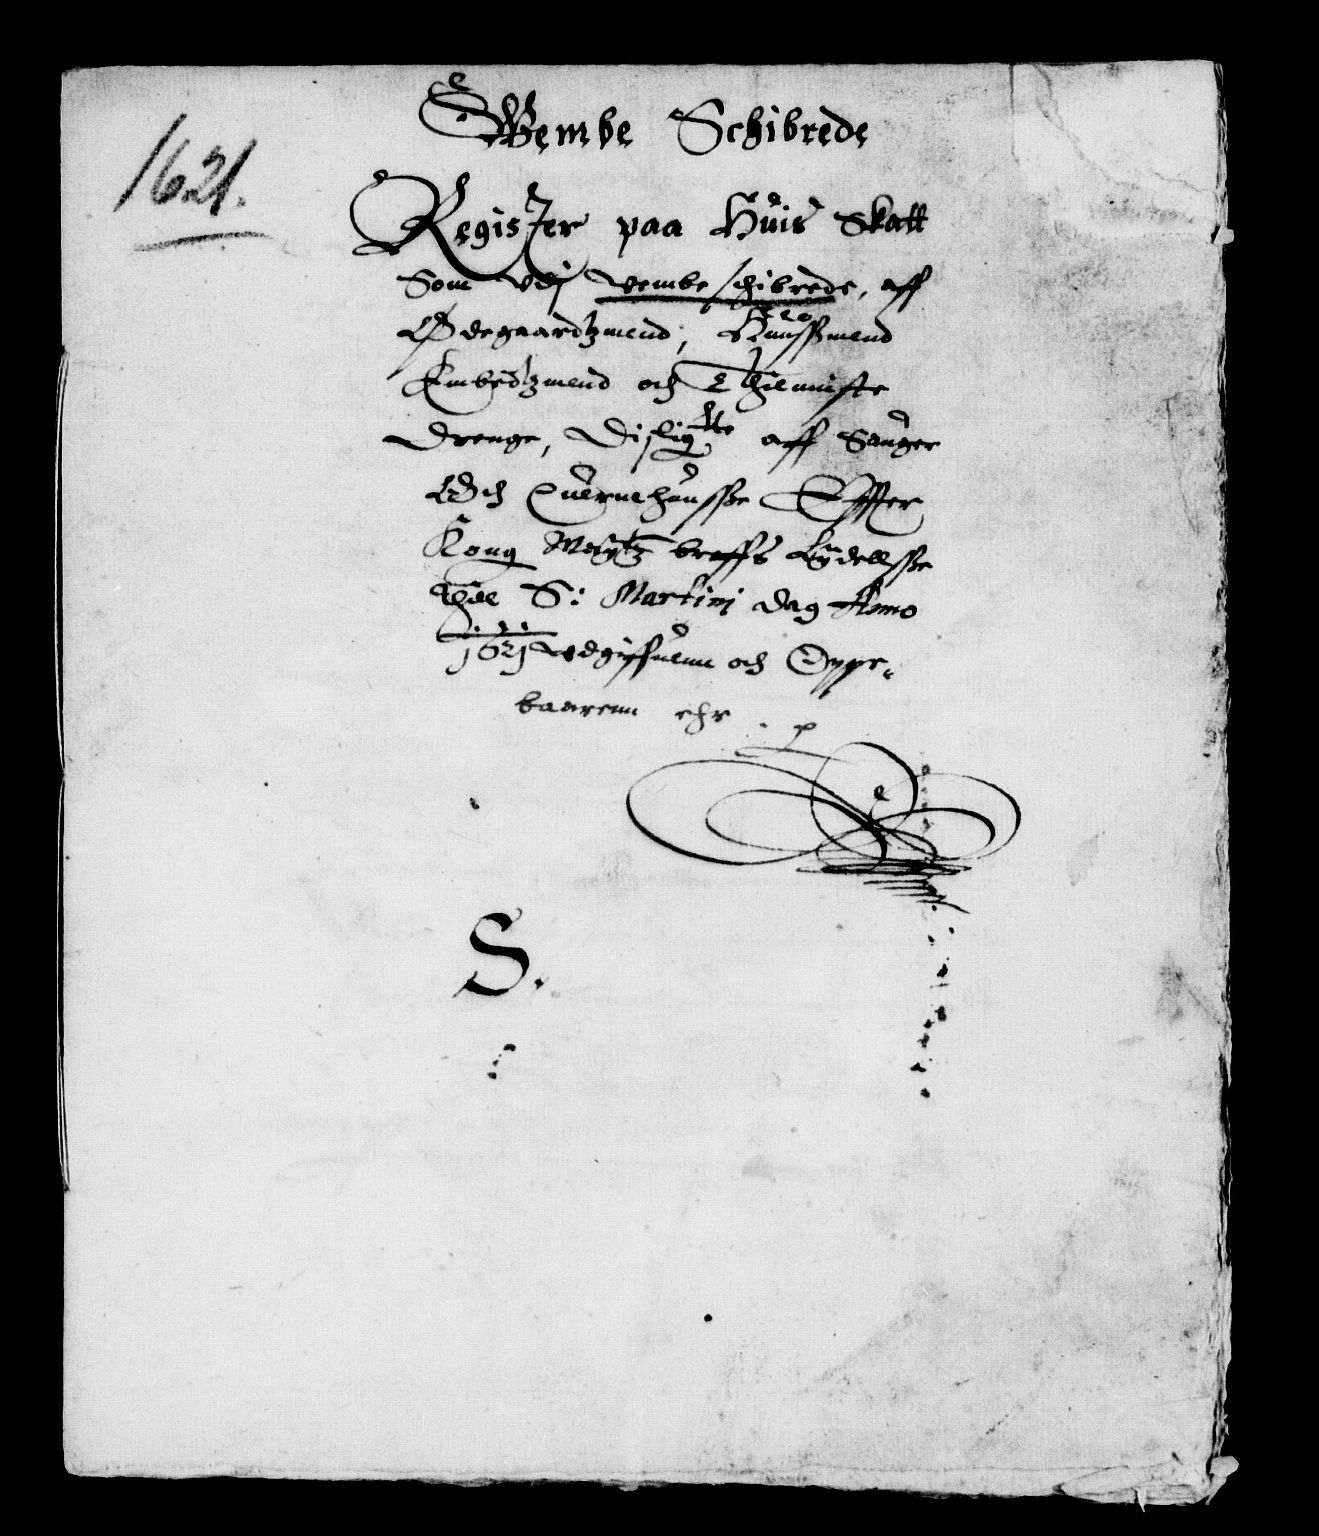 Wembe Schibrede
1621.
Register paa Huis Skatt
Som vdj wembe schibrede, aff
Ødegaardtzmend, Huussmend
Embedtzmend och Thienniste
drenge, Disligste aff Sauger
Och Quernehuusse Effter
Kong Maytz breffs Lydellsse
Thil S: Martini dag Anno
1621 vdgiffuenn och Oppe-
baarenn ehr . p
S.